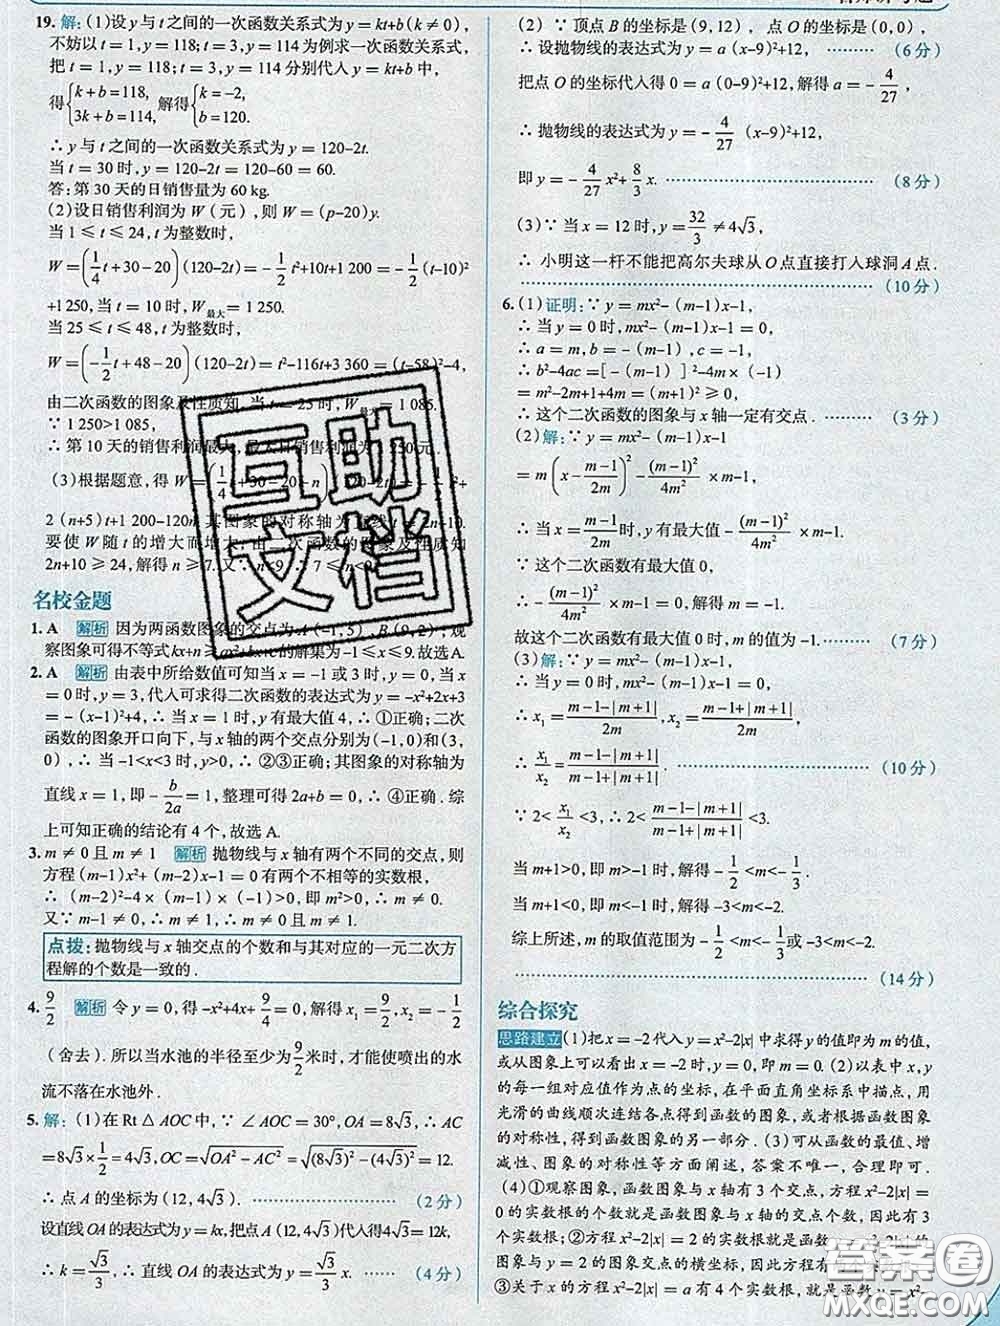 19. 解:(1)设y与t之间的一次函数关系式为y=kt+b(k≠0),
不妨以t=1,y=118;t=3,y=114为例求一次函数关系式,
把t=1,y=118;t=3,y=114分别代入y=kt+b中,
得{k+b=118, 3k+b=114, 解得{k=-2, b=120.
∴y与t之间的一次函数关系式为y=120-2t.
当t=30时,y=120-2t=120-60=60.
答:第30天的日销售量为60 kg.
(2)设日销售利润为W(元),则W=(p-20)y.
当1≤t≤24,t为整数时,
W=(1/4 t+30-20)(120-2t)=-1/2 t²+10t+1 200=-1/2(t-10)²
+1 250,当t=10时,W最大=1 250.
当25≤t≤48,t为整数时,
W=(-1/2 t+48-20)(120-2t)=t²-116t+3 360=(t-58)²-4,
由二次函数的图象及性质知,当t=25时,W最大=1 085.
∵1 250>1 085,
∴第10天的销售利润最大,最大日销售利润为1 250元.
(3)根据题意,得W=(1/4 t+30-20-n)(120-2t)=-1/2 t²+
2(n+5)t+1 200-120n,其图象的对称轴为直线t=2n+10.
要使W随t的增大而增大,由二次函数的图象及性质知
2n+10≥24,解得n≥7.又∵n<9,∴7≤n<9.
名校金题
1. A 解析 因为两函数图象的交点为A(-1,5),B(9,2),观
察图象可得不等式kx+n≥ax²+bx+c的解集为-1≤x≤9.故选A.
2. A 解析 由表中所给数值可知当x=-1或3时,y=0,当x
=0时,y=3,代入可求得二次函数的表达式为y=-x²+2x+3
=-(x-1)²+4,∴当x=1时,y有最大值4,∴①正确;二次
函数的图象开口向下,与x轴的两个交点分别为(-1,0)和(3,
0),∴当-1<x<3时,y>0,∴②③正确;其图象的对称轴为
直线x=1,即-b/2a=1,整理可得2a+b=0,∴④正确.综
上可知正确的结论有4个,故选A.
3. m≠0且m≠1 解析 抛物线与x轴有两个不同的交点,则
方程(m-1)x²+(m-2)x-1=0有两个不相等的实数根,
∴(m-2)²-4×(m-1)×(-1)>0,即m²>0,∴m≠0.
又∵m-1≠0,∴m≠1,∴m≠0且m≠1.
点拨:抛物线与x轴交点的个数和与其对应的一元二次方
程解的个数是一致的.
4. 9/2 解析 令y=0,得-x²+4x+9/4=0,解得x₁=9/2,x₂=-1/2
(舍去).所以当水池的半径至少为9/2米时,才能使喷出的水
流不落在水池外.
5. 解:(1)在Rt△AOC中,∵∠AOC=30°,OA=8√3,∴AC
=8√3×1/2=4√3,OC=√(OA²-AC²)=√((8√3)²-(4√3)²)=12.
∴点A的坐标为(12,4√3).……(2分)
设直线OA的表达式为y=kx,把点A(12,4√3)代入得4√3=12k,
∴k=√3/3,∴直线OA的表达式为y=√3/3 x.……(4分)
(2)∵顶点B的坐标是(9,12),点O的坐标是(0,0),
∴设抛物线的表达式为y=a(x-9)²+12,……(6分)
把点O的坐标代入得0=a(0-9)²+12,解得a=-4/27,
∴抛物线的表达式为y=-4/27(x-9)²+12,
即y=-4/27 x²+8/3 x.……(8分)
(3)∵当x=12时,y=32/3≠4√3,
∴小明这一杆不能把高尔夫球从O点直接打入球洞A点.
……(10分)
6. (1)证明:∵y=mx²-(m-1)x-1,
∴当y=0时,mx²-(m-1)x-1=0,
∴a=m,b=-(m-1),c=-1,
∴b²-4ac=[-(m-1)]²-4m×(-1)
=m²-2m+1+4m=(m+1)²≥0,
∴这个二次函数的图象与x轴一定有交点.……(3分)
(2)解:∵y=mx²-(m-1)x-1
=m(x-(m-1)/2m)²-(m-1)²/4m²-1,
∴当x=(m-1)/2m时,y有最大值-(m-1)²/4m²-1,
∵这个二次函数有最大值0,
∴-(m-1)²/4m²-1=0,∴m=-1,
故这个二次函数有最大值0时,m的值为-1.……(7分)
(3)解:∵y=mx²-(m-1)x-1,
∴当y=0时,mx²-(m-1)x-1=0,
∴x₁=(m-1-|m+1|)/2m,x₂=(m-1+|m+1|)/2m,
∴x₁/x₂=(m-1-|m+1|)/(m-1+|m+1|).……(10分)
∵2<x₁/x₂<3,∴2<(m-1-|m+1|)/(m-1+|m+1|)<3.
当m+1>0,即m>-1时,解得-1/2<m<-1/3;
当m+1<0,即m<-1时,解得-3<m<-2.
综上所述,m的取值范围为-1/2<m<-1/3或-3<m<-2.
……(14分)
综合探究
思路建立 (1)把x=-2代入y=x²-2|x|中求得y的值即为m的值,
或从图象上可以看出x=-2时,y=0,即m=0.(2)以表中x,
y的每一组对应值作为点的坐标,在平面直角坐标系中描点,用
光滑的曲线顺次连结各点得到函数的图象,或者根据函数图象
的对称性,得到函数图象的另一部分.(3)可从函数的最值、增
减性、图象的对称性等方面阐述,答案不唯一,合理即可.
(4)①观察图象,函数图象与x轴有3个交点,方程x²-2|x|=
0的实数根的个数就是函数图象与x轴的交点个数,因此有3
个实数根;②方程x²-2|x|=2的实数根就是函数
图象与直线y=2的交点的横坐标,因此方程有
③关于x的方程x²-2|x|=a有4个实数根,就是函数y=x²-
互助
文档
答案卷
MXQE.COM